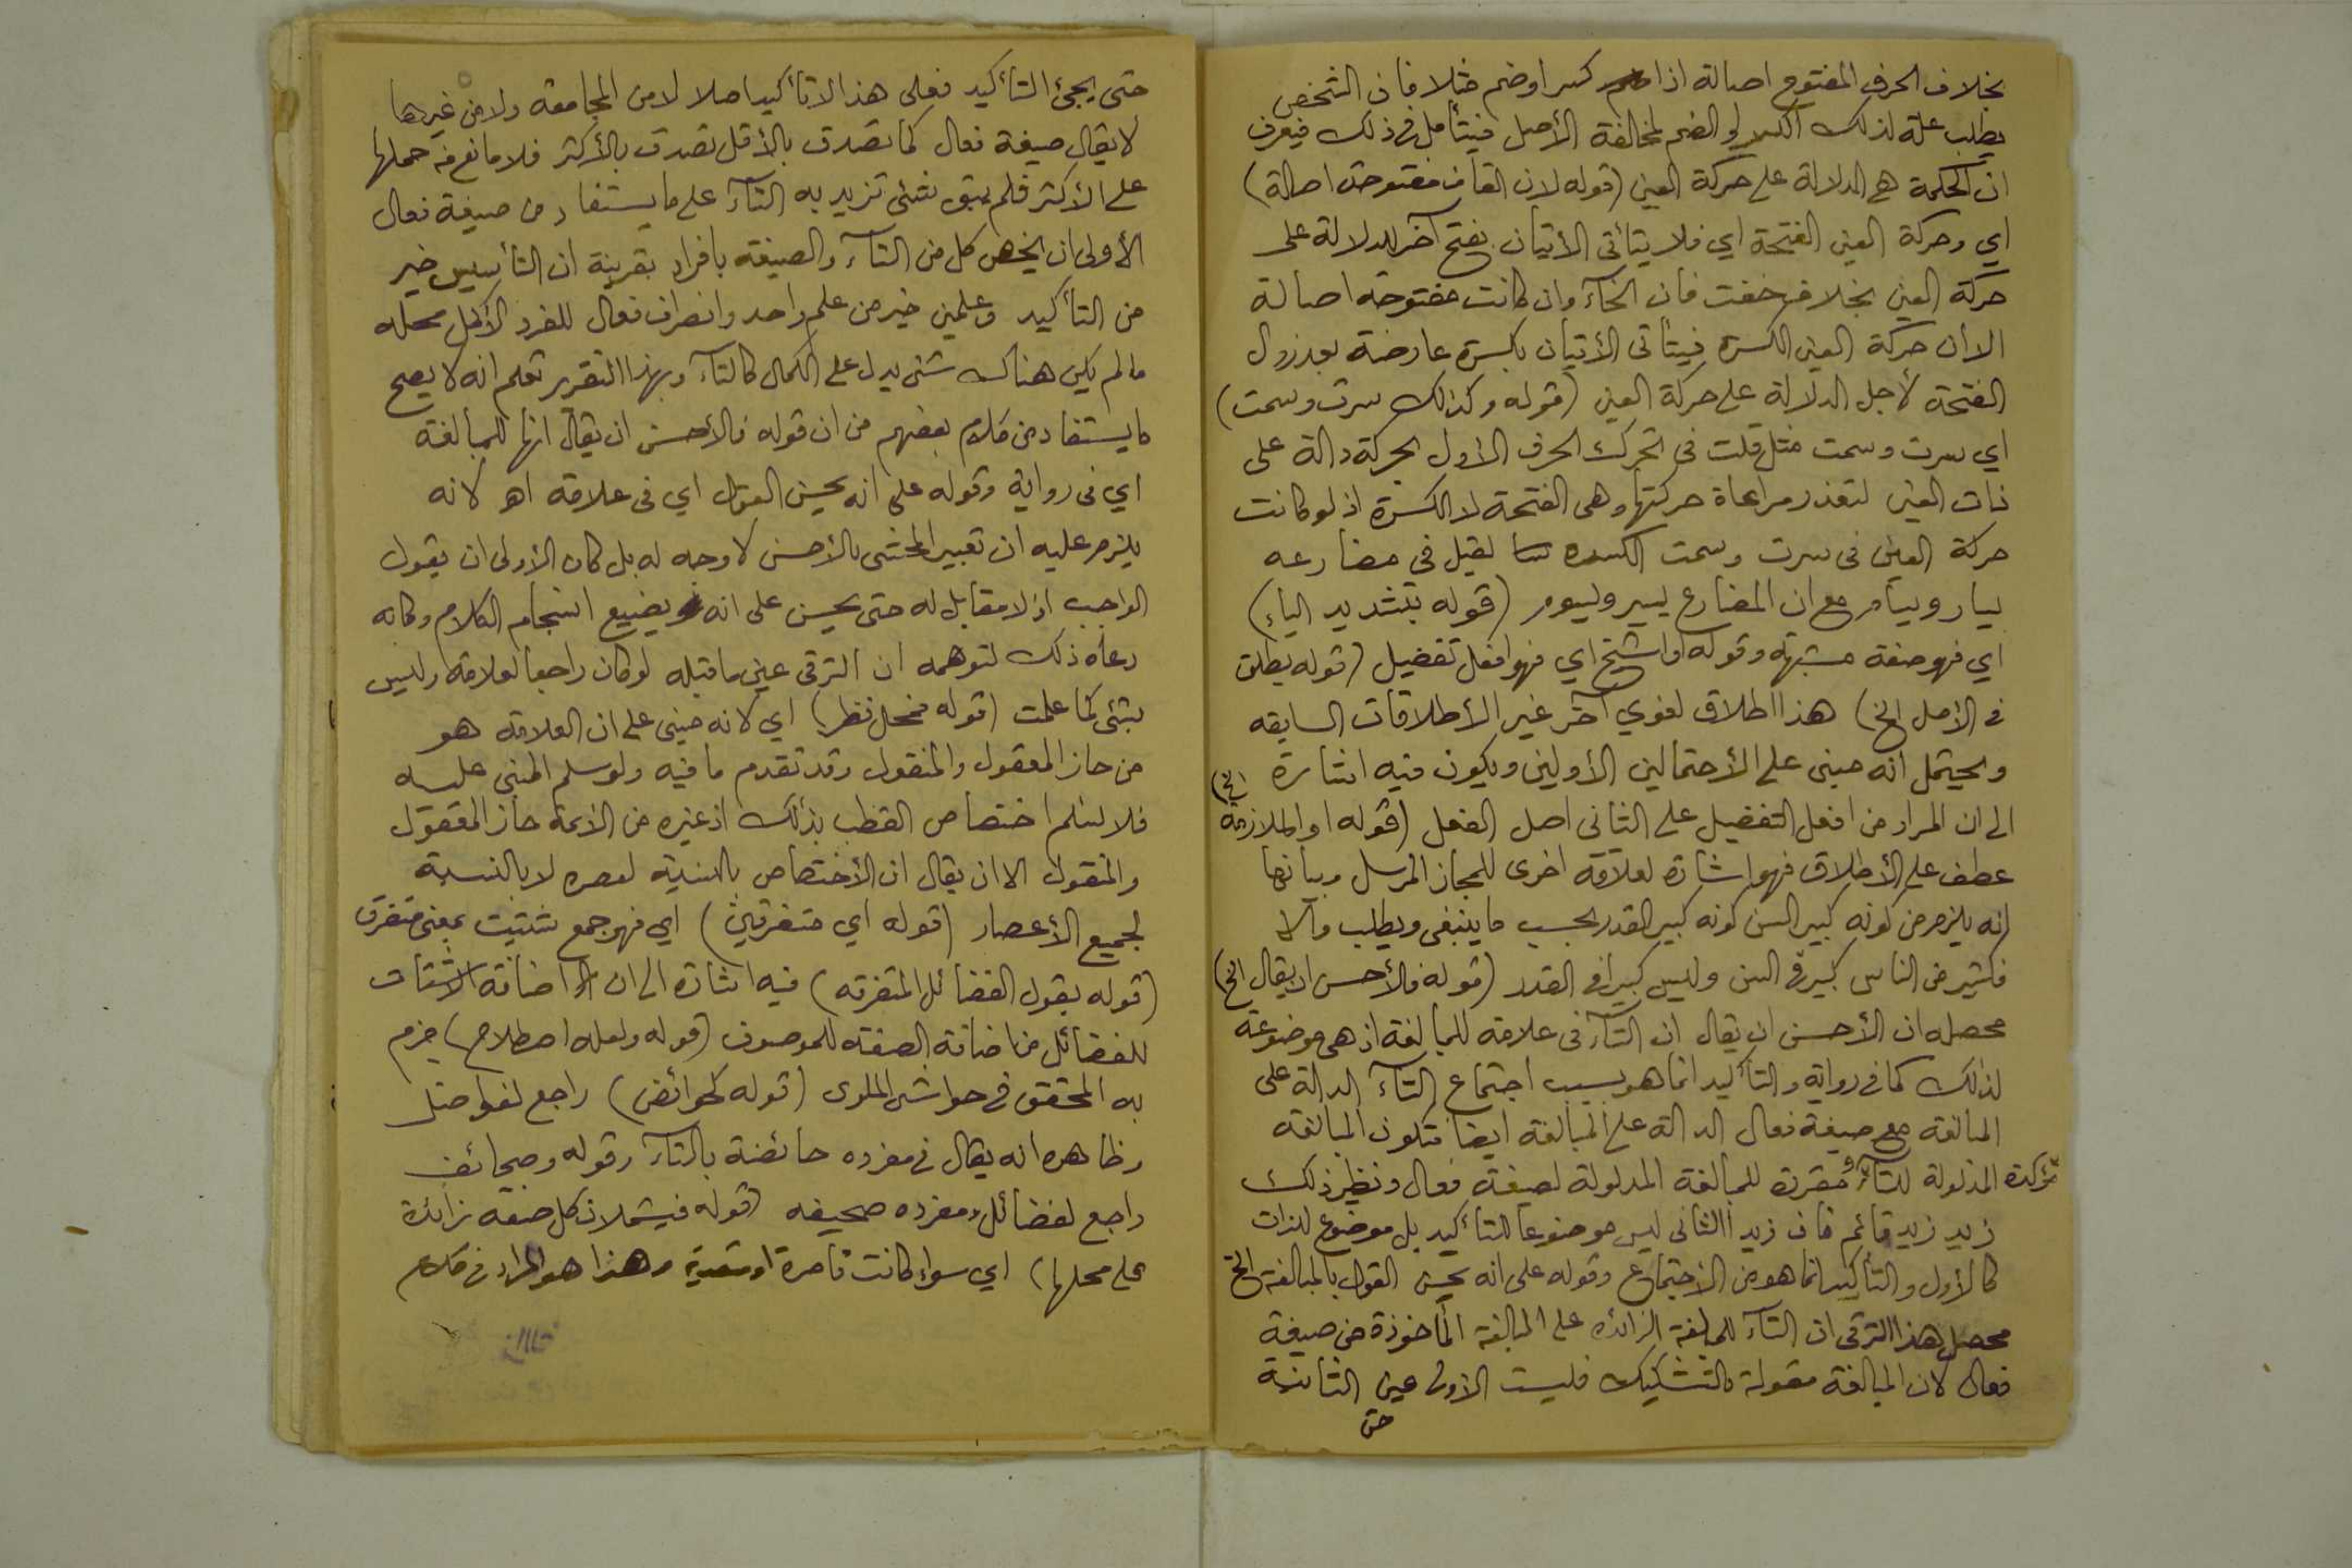 بخلاف الحرف المفتوح اصالة اذا كسر او ضم مثلا فان الشخص
يطلب علة لذلك الكسر او الضم لمخالفة الأصل فيتأمل في ذلك فيعرف
ان الحكمة هي الدلالة على حركة العين (قوله لان القاف مفتوحة اصالة)
اي وحركة العين الفتحة اي فلا يتأتى الأتيان بفتح آخر للدلالة على
حركة العين بخلاف خفت فان الخآء وان كانت مفتوحة اصالة
الا أن حركة العين الكسرة فيتأتى الأتيان بكسرة عارضة بعد زوال
الفتحة لأجل الدلالة على حركة العين (قوله وكذلك سرت وسمت)
اي سرت وسمت مثل قلت في تحرك الحرف الاول بحركة دالة على
ذات العين لتعذر مراعاة حركتها وهي الفتحة لا الكسرة اذ لو كانت
حركة العين في سرت وسمت الكسره لقيل في مضارعه
يسار ويسام مع ان المضارع يسير ويسوم (قوله بتشديد الياء)
اي فهو صفة مشبهة وقوله او اشيخ اي فهو افعل تفضيل (قوله يطلق
في الأصل الخ) هذا اطلاق لغوي آخر غير الأطلاقات السابقه
ويحتمل انه مبني على الأحتمالين الأولين ويكون فيه اشارة
الى ان المراد من افعل التفضيل على الثاني اصل الفعل (قوله او الملازمة الخ)
عطف على الأطلاق فهو اشارة لعلاقة اخرى للمجاز المرسل وبيانها
انه يلزم من كونه كبير السن كونه كبير القدر بحسب ما ينبغى ويطلب والا
فكثير من الناس كبير في السن وليس كبيرا في القدر (قوله فالأحسن ان يقال الخ)
محصله ان الأحسن ان يقال ان التآء في علامه للمبالغة اذ هي موضوعة
لذلك كما في رواية والتأكيد انما هو بسبب اجتماع التآء الدالة على
المبالغة مع صيغة فعال الدالة على المبالغة ايضا فتكون المبالغة
المدلولة للتآء مؤكدة ومقررة للمبالغة المدلولة لصيغة فعال ونظير ذلك
زيد زيد قائم فان زيدا الثاني ليس موضوعا للتأكيد بل موضوع للذات
كالأول والتأكيد انما هو من الاجتماع وقوله على انه يحسن القول بالمبالغة الخ
محصل هذا الترقي ان التآء للمبالغة الزائده على المبالغة المأخوذة من صيغة
فعال لان المبالغة مقولة بالتشكيك فليست الاولى عين الثانية
حتى
حتى يجئ التأكيد فعلى هذا لا تأكيد اصلا لا من المجامعة ولا من غيرها
لا يقال صيغة فعال كما تصدق بالأقل تصدق بالأكثر فلا مانع من حملها
على الأكثر فلم يبق شئ تزيد به التآء على ما يستفاد من صيغة فعال
الأولى ان يخص كل من التآء والصيغه بافراد بقرينة ان التأسيس خير
من التأكيد وعلمين خير من علم واحد وانصراف فعال للفرد الأكمل محله
ما لم يكن هناك شئ يدل على الكمال كالتآء وبهذا التقرير تعلم انه لا يصح
ما يستفاد من كلام بعضهم من ان قوله فالأحسن ان يقال انها للمبالغة
اي في رواية وقوله على انه يحسن القول اي في علامه اهـ لانه
يلزم عليه ان تعبير المحشى بالأحسن لا وجه له بل كان الأولى ان يقول
الواجب اذ لا مقابل له حتى يحسن على انه يضيع انسجام الكلام وكانه
دعاه ذلك لتوهمه ان الترقي عين ما قبله لو كان راجعا لعلامه وليس
بشئ كما علمت (قوله محل نظر) اي لانه مبني على ان العلامه هو
من حاز المعقول والمنقول وقد تقدم ما فيه ولو سلم المبنى عليه
فلا نسلم اختصاص القطب بذلك اذ غيره من الأئمة حاز المعقول
والمنقول الا ان يقال ان الأختصاص بالنسبة لعصره لا بالنسبة
لجميع الأعصار (قوله اي متفرقين) اي فهو جمع شتيت بمعنى متفرق
(قوله يقول الفضائل المتفرقه) فيه اشارة الى ان اضافة الأشتات
للفضائل من اضافة الصفة للموصوف (قوله ولعله اصطلاح) جزم
به المحقق في حواشى الملوى (قوله كحوائض) راجع لفواضل
وظاهره انه يقال في مفرده حائضة بالتآء وقوله وصحائف
راجع لفضائل ومفرده صحيفه (قوله فيشملان كل صفه زائدة
على محلها) اي سواء كانت قاصرة او متعدية وهذا هو المراد في كلام